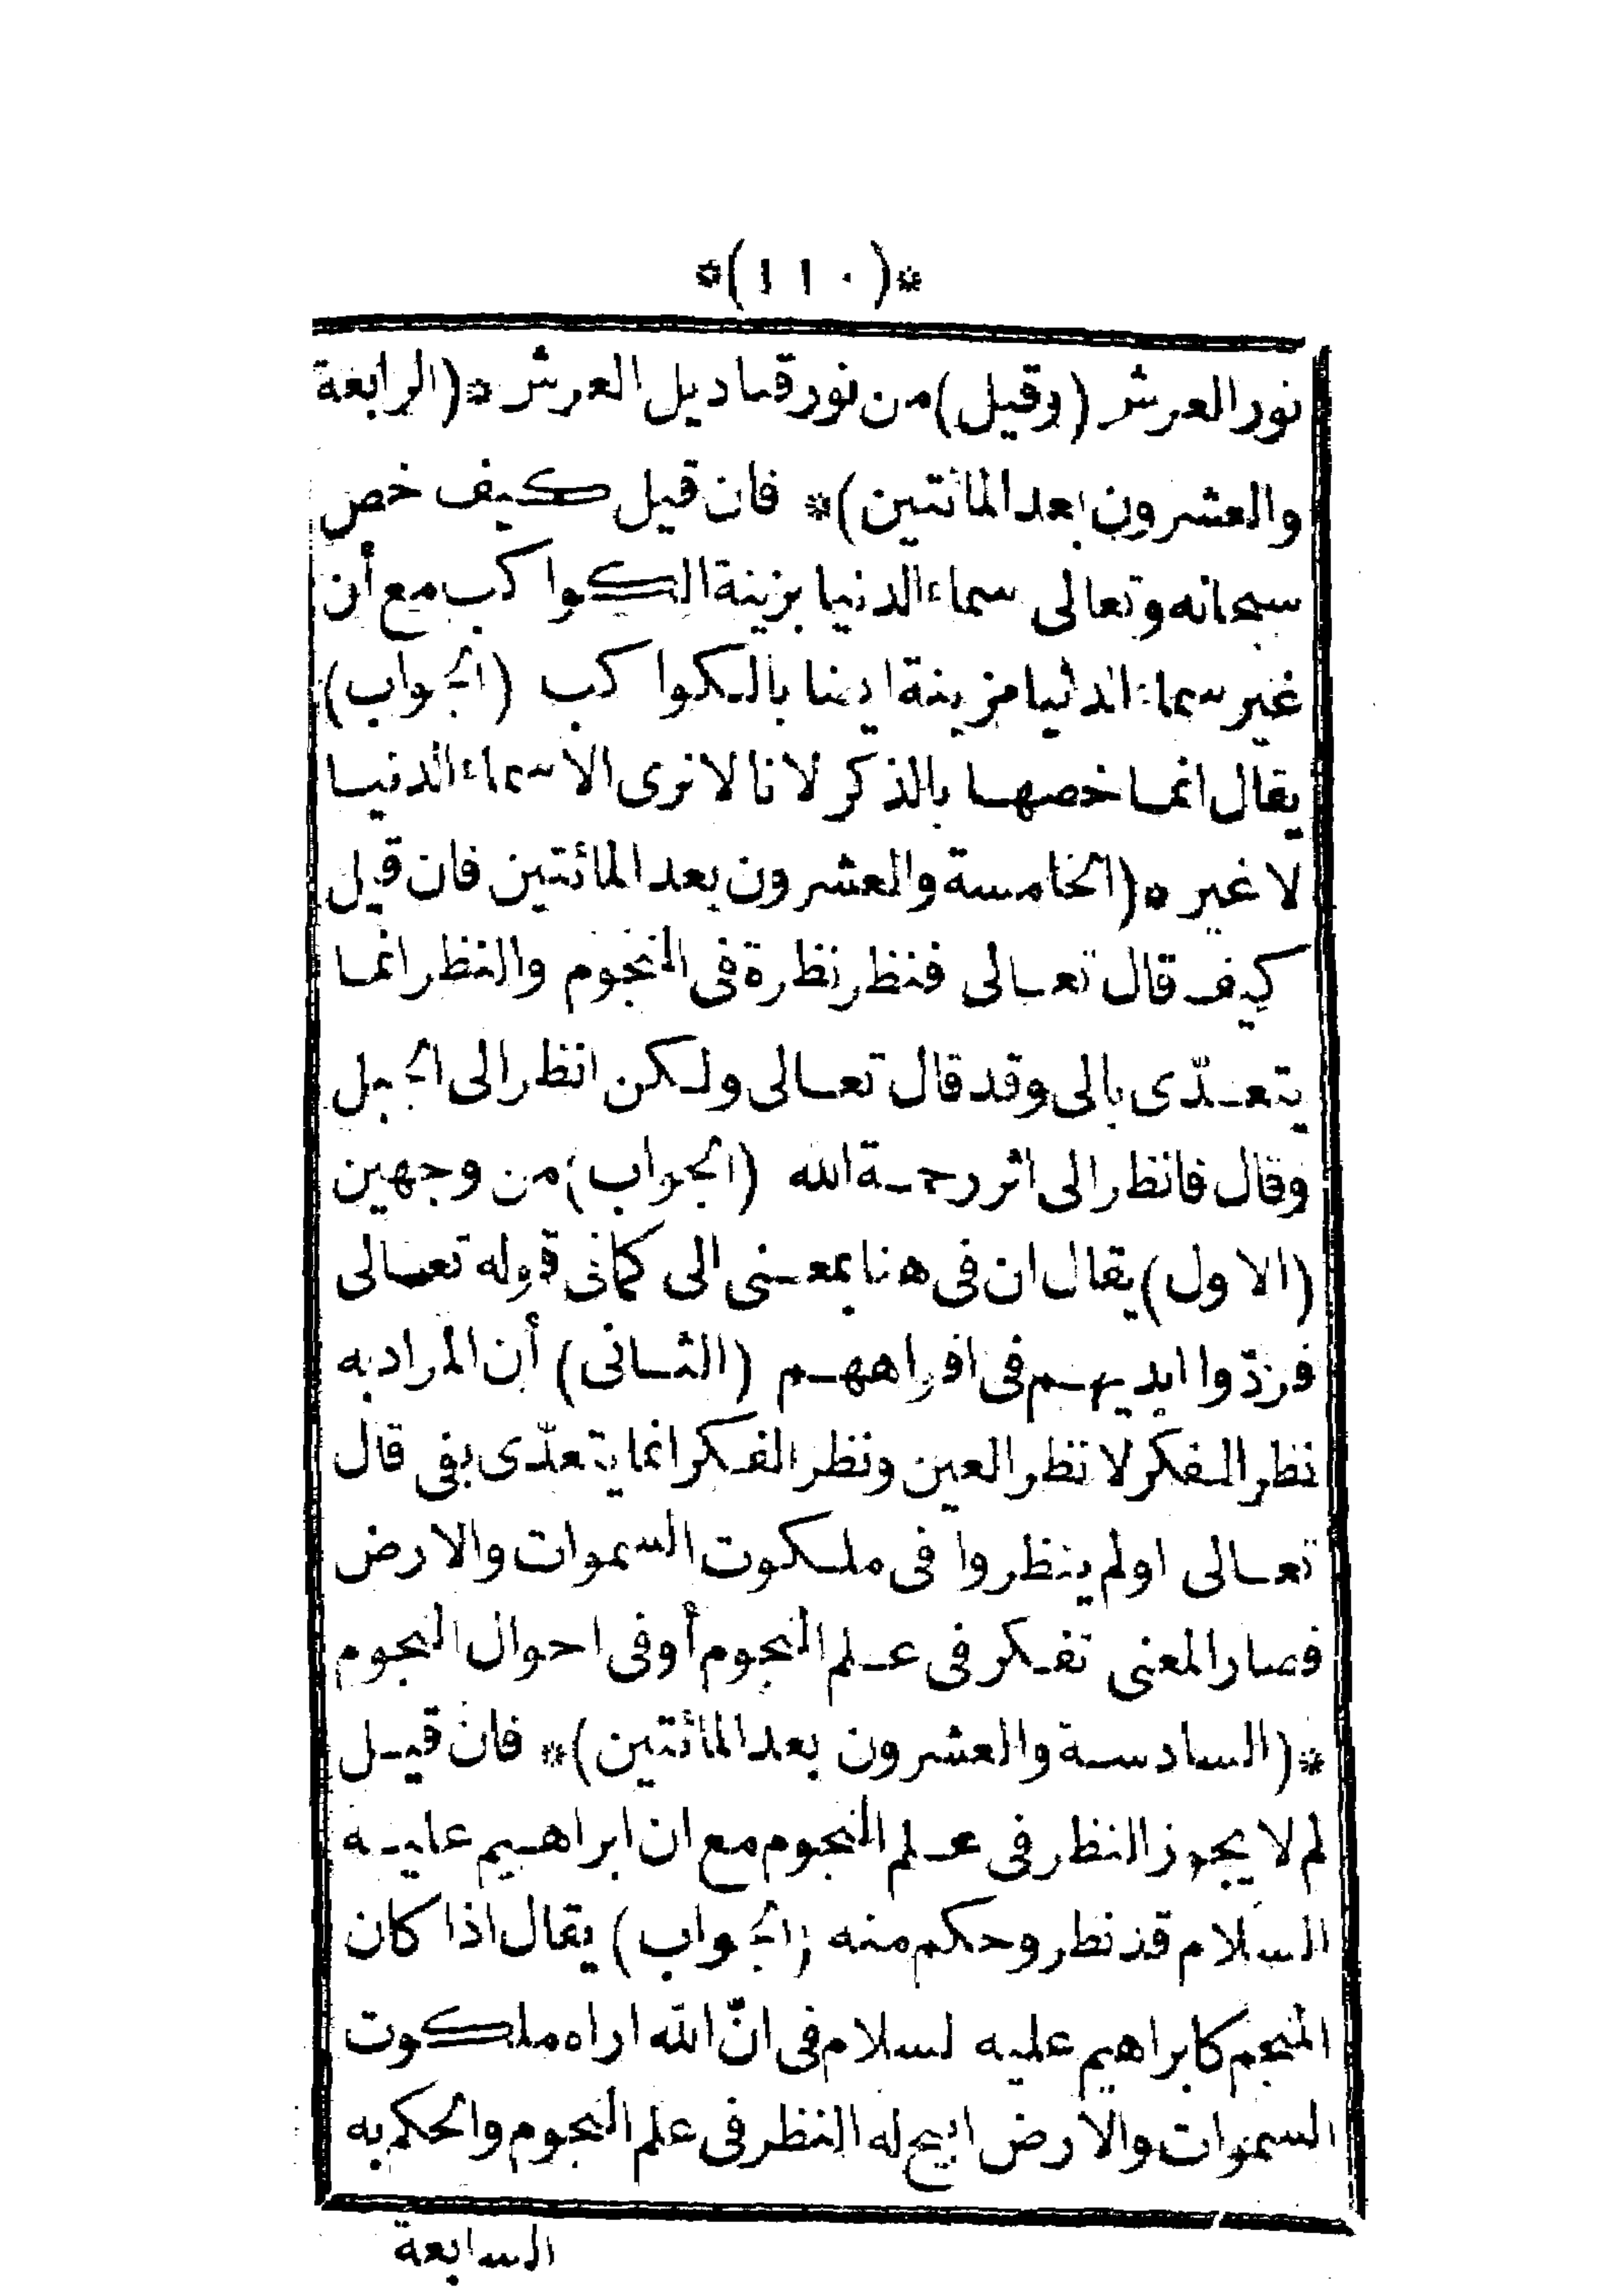 *(١١٠)*
نور العرش (وقيل) من نور قناديل العرش *(الرابعة
والعشرون بعد المائتين)* فان قيل كيف خص
سبحانه وتعالى سماء الدنيا بزينة الكواكب مع أن
غير سماء الدنيا مزينة ايضا بالكواكب (الجواب)
يقال انما خصها بالذكر لانا لا نرى الا سماء الدنيا
لا غير *(الخامسة والعشرون بعد المائتين فان قيل
كيف قال تعالى فنظر نظرة فى النجوم والنظر انما
يتعدّى بالى وقد قال تعالى ولكن انظر الى الجبل
وقال فانظر الى اثر رحمة الله (الجواب) من وجهين
(الاول) يقال ان فى هنا بمعنى الى كما فى قوله تعالى
فردّوا ايديهم فى افواههم (الثانى) أن المراد به
نظر الفكر لا نظر العين ونظر الفكر انما يتعدّى بفى قال
تعالى اولم ينظروا فى ملكوت السموات والارض
فصار المعنى تفكر فى علم النجوم أو فى احوال النجوم
*(السادسة والعشرون بعد المائتين)* فان قيل
لم لا يجوز النظر فى علم النجوم مع ان ابراهيم عليه
السلام قد نظر وحكم منه (الجواب) يقال اذا كان
المنجم كابراهيم عليه لسلام فى انّ الله اراه ملكوت
السموات والارض ابيح له النظر فى علم النجوم والحكم به
السابعة